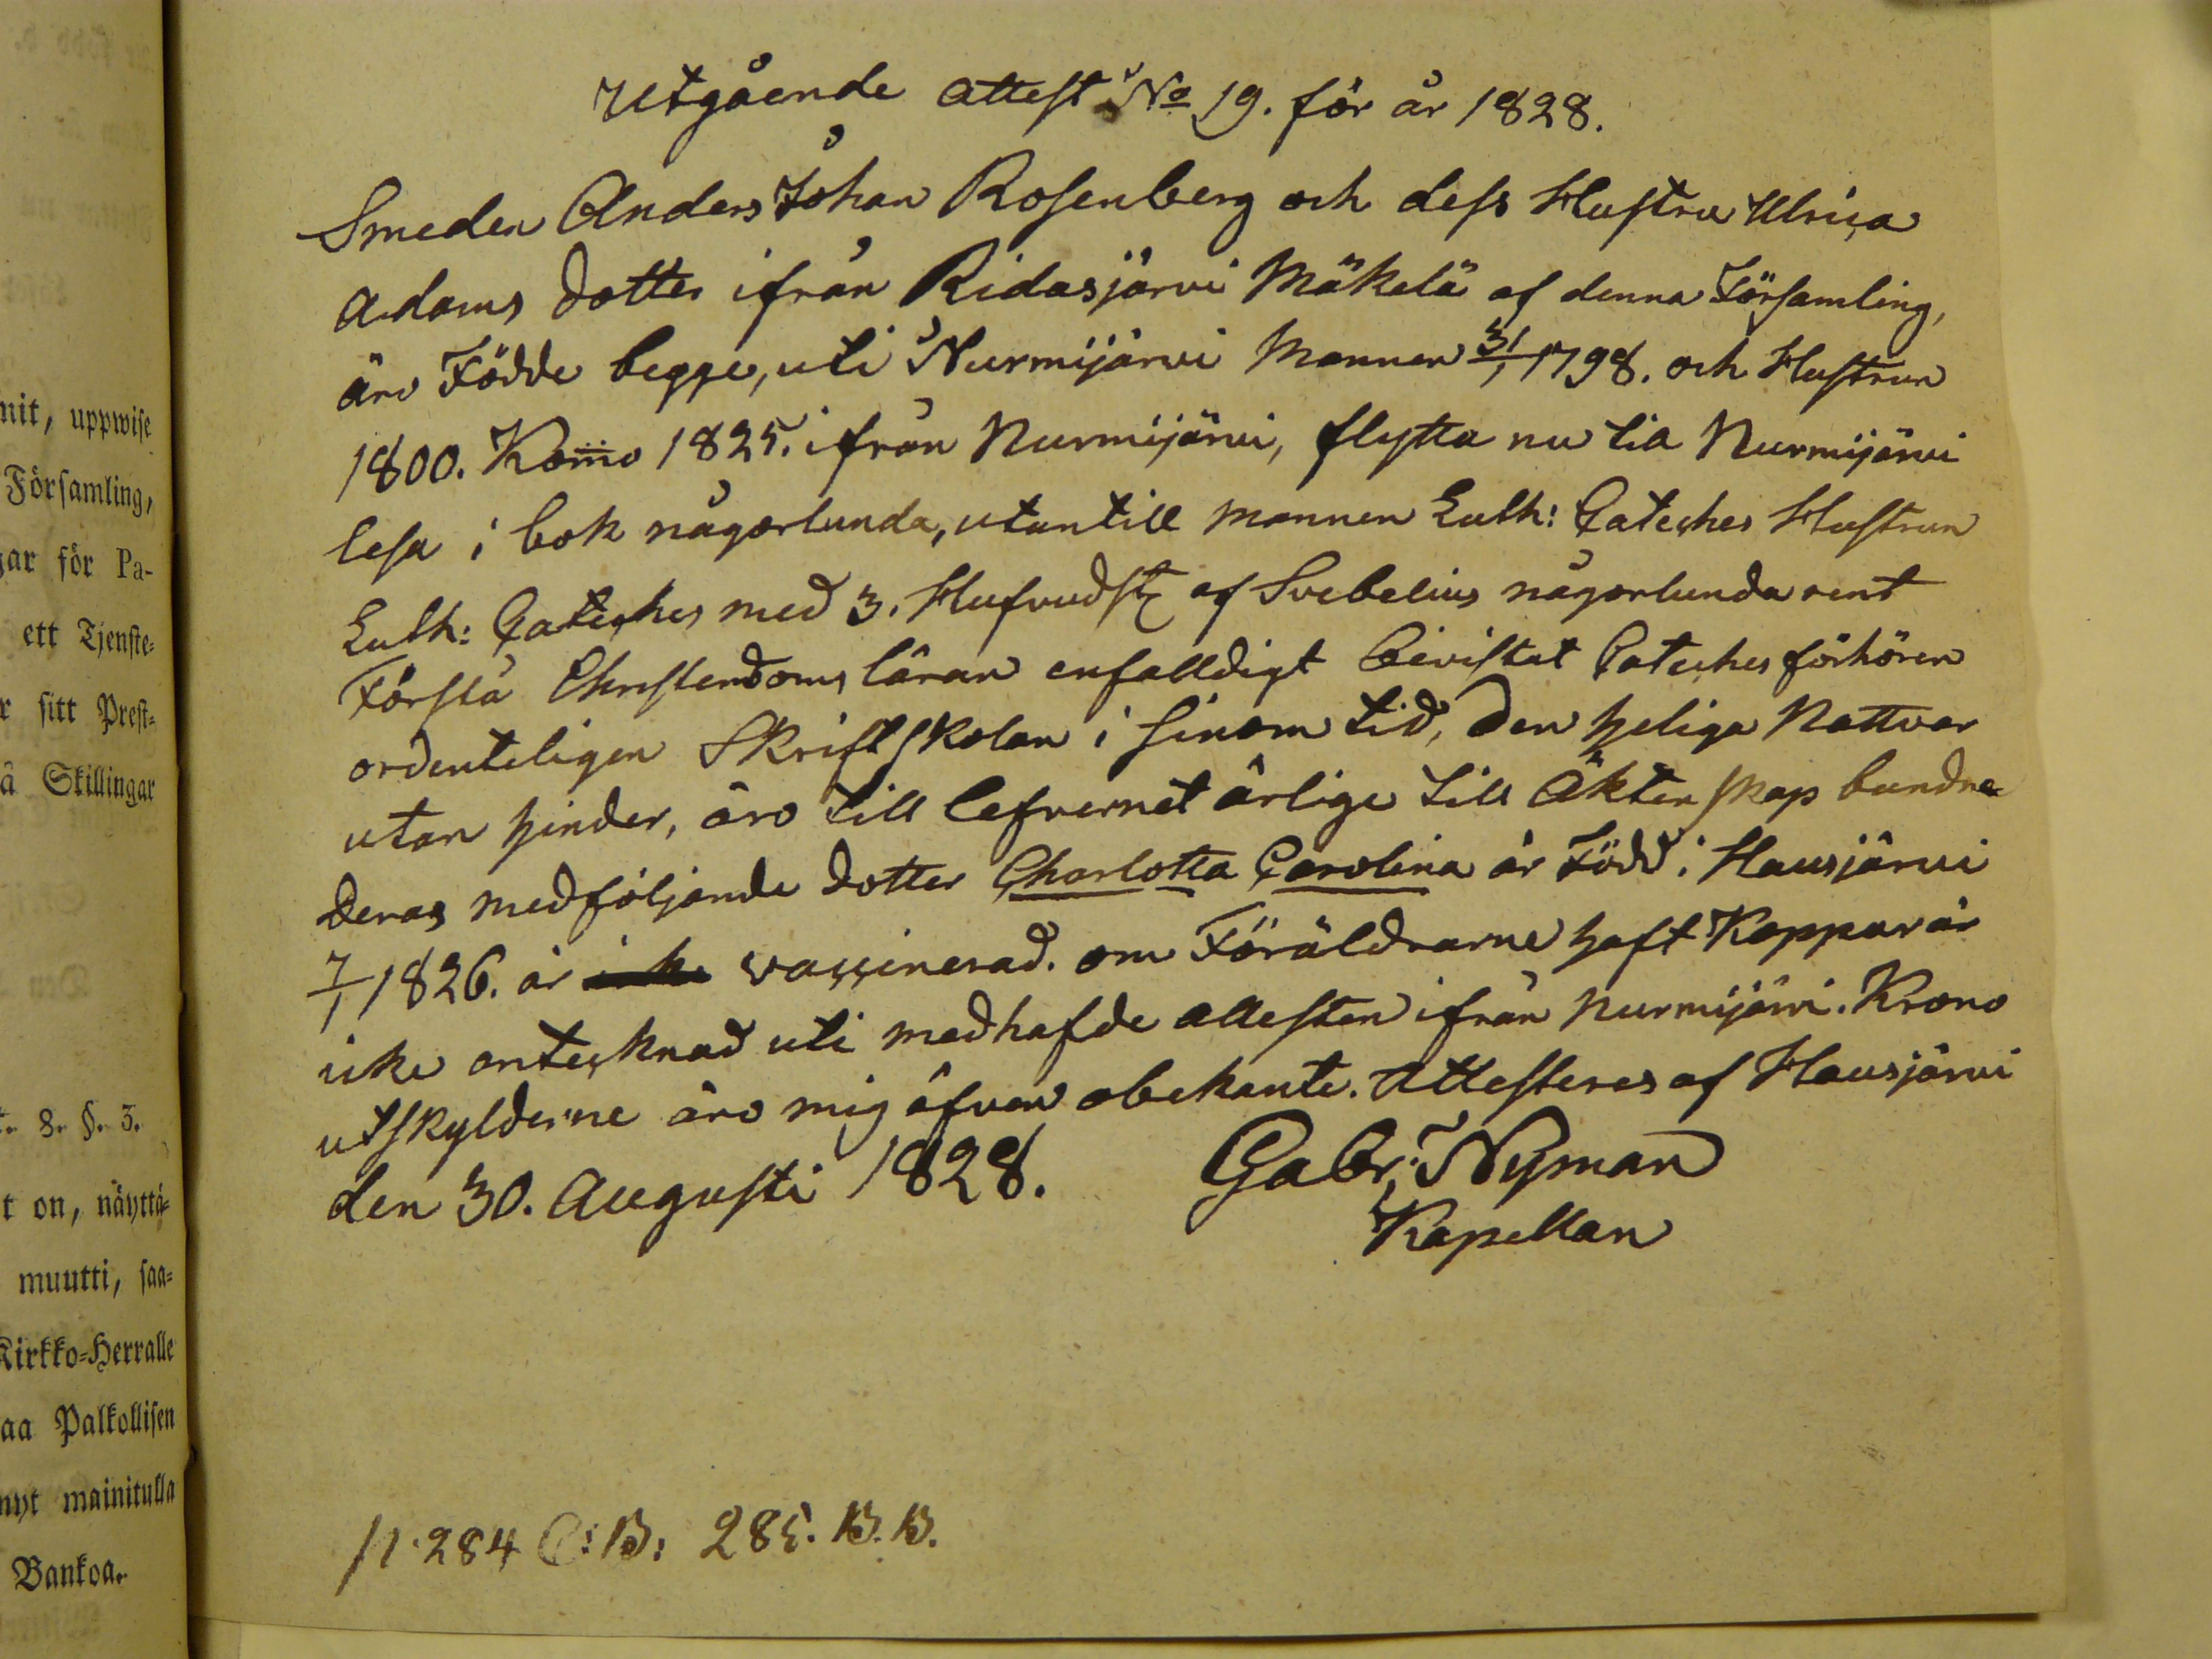 nit, uppwise
Församling,
gar för Pa-
ett Tjenste-
r sitt Prest-
å Skillingar
8. §. 3.
t on, näyttä-
muutti, saa-
Kirkko-Herralle
aa Palkollisen
nyt mainitulla
Bankoa.
Utgående attest No 19. för år 1828.
Smeden Anders Johan Rosenberg och dess Hustru Ulrica
Adams dotter ifrån Ridasjärvi Mäkelä af denna Församling,
äro Födde begge, uti Nurmijärvi Mannen 31/1 1798. och Hustrun
1800. Kom̄o 1825. ifrån Nurmijärvi, flytta nu till Nurmijärvi
lesa i bok någorlunda, utantill mannen Luth: Cateches Hustrun
Luth: Cateches med 3. Hufvudst af Svebelius någorlunda rent
Förstå Christendoms läran enfalldigt bevistat Cateches förhören
ordenteligen Skriftskolan i sinom tid, den heliga Nattvar
utan hinder, äro till lefvernet ärlige till Äktenskap bundne
deras medföljande dotter Charlotta Carolina är Född i Hausjärvi
7/1 1826. är icke vaccinerad. om Föräldrarne haft Koppor är
icke antecknad uti medhafde attesten ifrån Nurmijärvi. Krono
utskylderne äro mig äfven obekante. Attesteres af Hausjärvi
den 30. Augusti 1828. Gabr: Nyman
Kapellan
p. 284 C: B: 285. B. B.